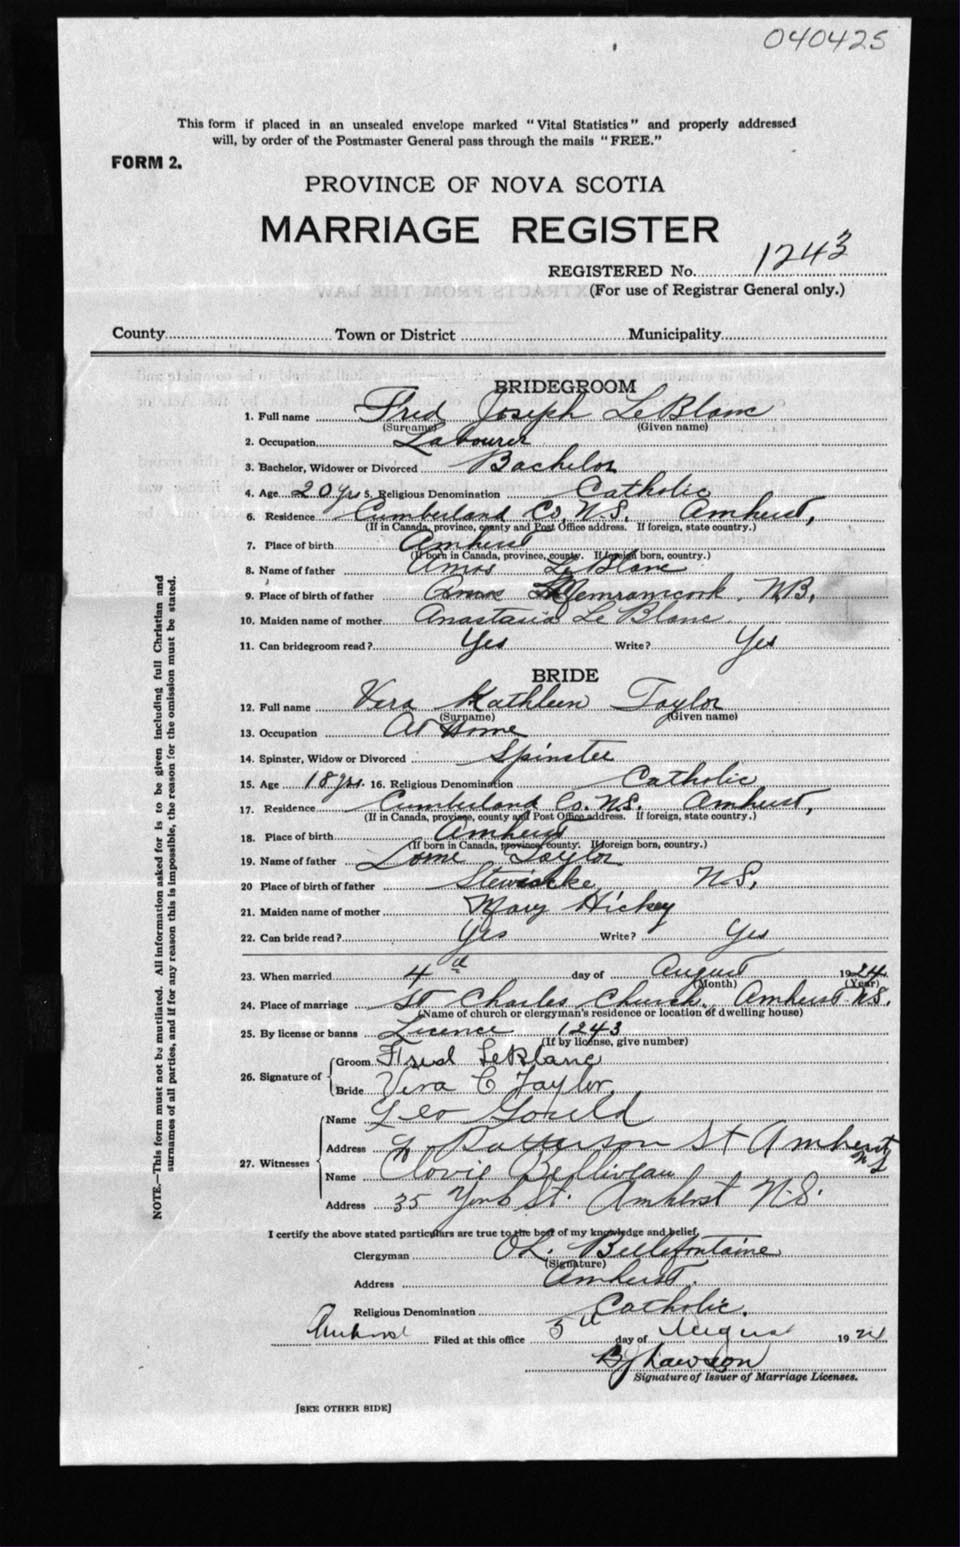 040425
This form if placed in an unsealed envelope marked "Vital Statistics" and properly addressed
will, by order of the Postmaster General pass through the mails "FREE."
FORM 2.
PROVINCE OF NOVA SCOTIA
MARRIAGE REGISTER
REGISTERED No. 1243
(For use of Registrar General only.)
County Town or District Municipality
BRIDEGROOM
1. Full name Fred Joseph LeBlanc
(Surname) (Given name)
2. Occupation Labourer
3. Bachelor, Widower or Divorced Bachelor
4. Age 20 yrs 5. Religious Denomination Catholic
6. Residence Cumberland Co, N.S. Amherst,
(If in Canada, province, county and Post Office address. If foreign, state country.)
7. Place of birth Amherst
(If born in Canada, province, county. If foreign born, country.)
8. Name of father Amos LeBlanc
9. Place of birth of father Memramcook, N.B.
10. Maiden name of mother Anastasia LeBlanc
11. Can bridegroom read? Yes Write? Yes
BRIDE
12. Full name Vera Kathleen Taylor
(Surname) (Given name)
13. Occupation At Home
14. Spinster, Widow or Divorced Spinster
15. Age 18 yrs. 16. Religious Denomination Catholic
17. Residence Cumberland Co. N.S. Amherst,
(If in Canada, province, county and Post Office address. If foreign, state country.)
18. Place of birth Amherst
(If born in Canada, province, county. If foreign born, country.)
19. Name of father Lorne Taylor
20 Place of birth of father Stewiacke, N.S,
21. Maiden name of mother Mary Hickey
22. Can bride read? Yes Write? Yes
23. When married 4th day of August 1924
(Month) (Year)
24. Place of marriage St Charles Church, Amherst N.S.
(Name of church or clergyman's residence or location of dwelling house)
25. By license or banns Licence 1243
(If by license, give number)
26. Signature of Groom Fred LeBlanc
Bride Vera C Taylor
27. Witnesses Name Geo Gould
Address Patterson St Amherst NS
Name Clovie Belliveau
Address 35 York St. Amherst N.S.
I certify the above stated particulars are true to the best of my knowledge and belief.
Clergyman Bellefontaine
(Signature)
Address Amherst.
Religious Denomination Catholic.
Amherst Filed at this office 5th day of August 1924
Lawson
Signature of Issuer of Marriage Licenses.
[SEE OTHER SIDE]
NOTE.—This form must not be mutilated. All information asked for is to be given including full Christian and
surnames of all parties, and if for any reason this is impossible, the reason for the omission must be stated.